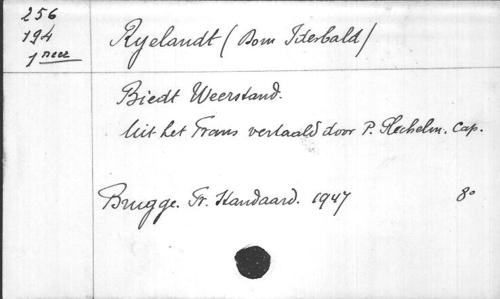 256
194
1 neer
Ryelandt (Dom Idesbald)
Biedt Weerstand.
Uit het Frans vertaald door P. Hechelm. Cap.
Brugge. Fr. Standaard. 1947 8°